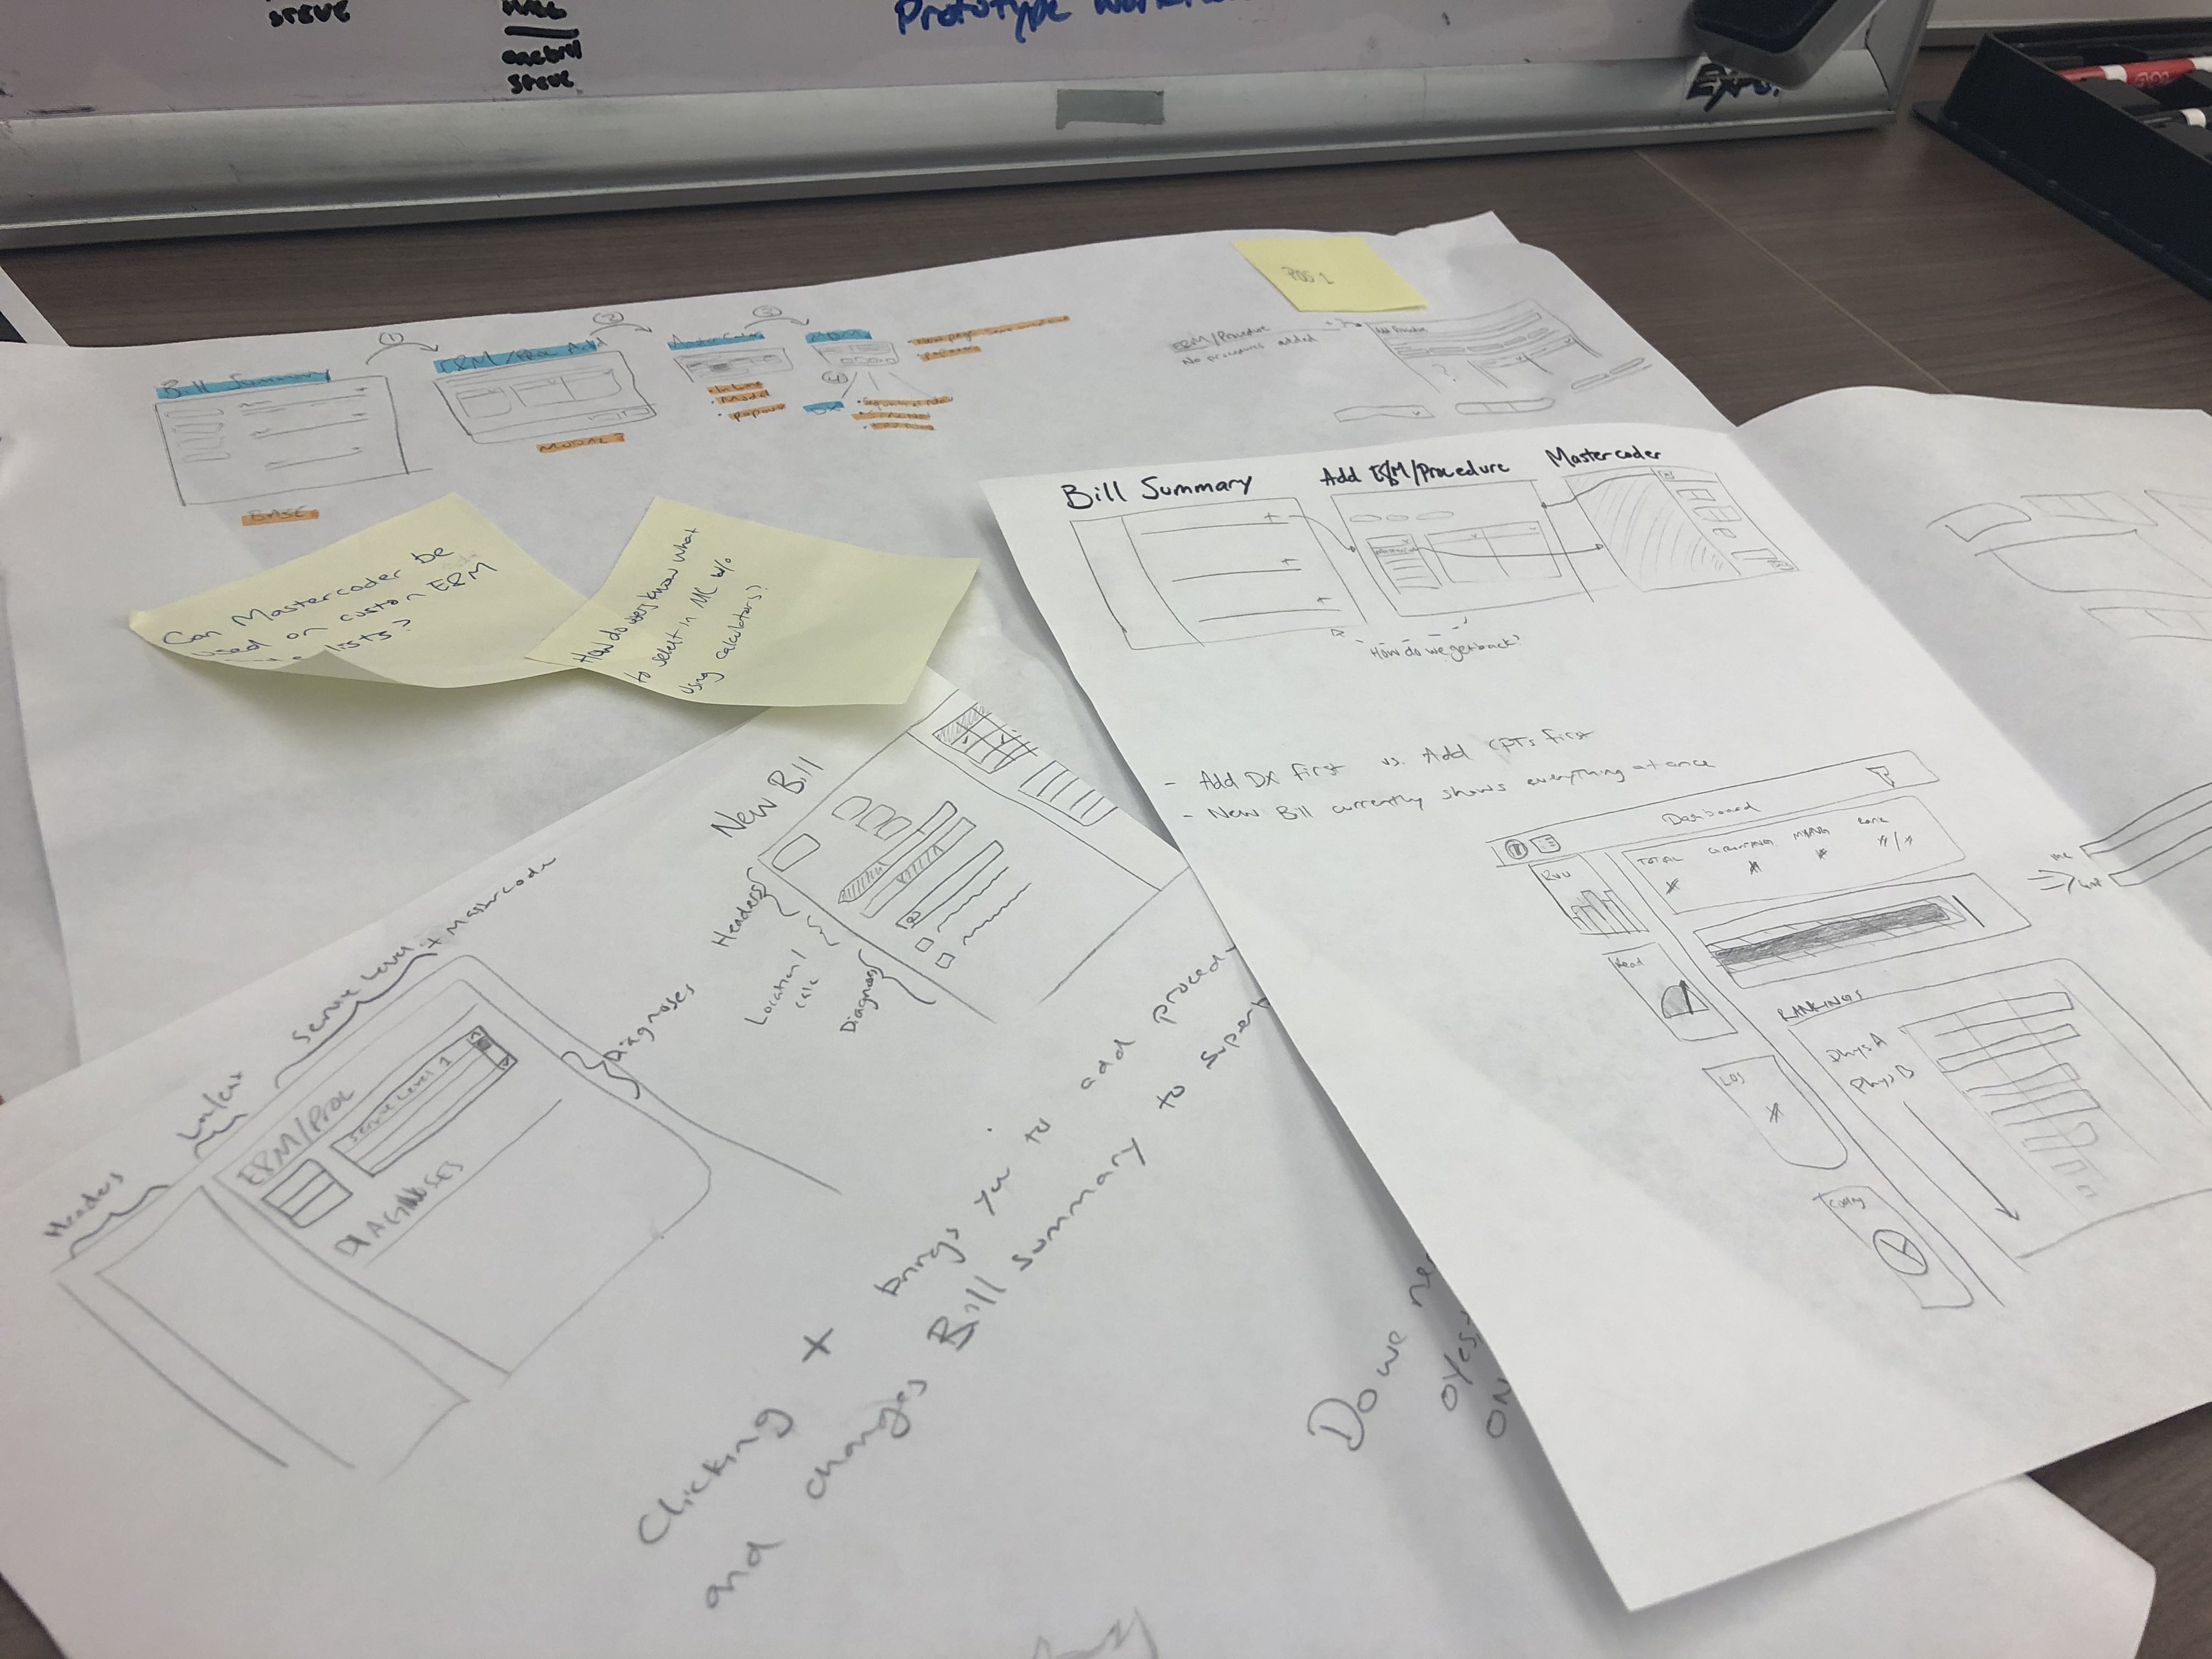 steve
onebill
steve
Prototype Workfl
Expo
POS 1
Bill Summary
E&M / Proc Add
Mastercoder
BASE
MODAL?
Modal
popover
DX
E&M/Procedure
No procedures added
Add Procedure
?
Can Mastercoder be
used on custom E&M
lists?
How do users know what
to select in MC w/o
using calculators?
Bill Summary
Add E&M/Procedure
Mastercoder
How do we get back?
- Add DX first vs. Add CPTs first
- New Bill currently shows everything at once
Dashboard
TOTAL
RVU
Read
LOS
RANKINGS
Phys A
Phys B
New Bill
Headers
Location/
calc
Diagnoses
Headers
Service Level
+ Mastercoder
E&M/Proc
Service Level 1
DIAGNOSES
Diagnoses
Clicking + brings you to add proced
and changes Bill Summary to
Do we